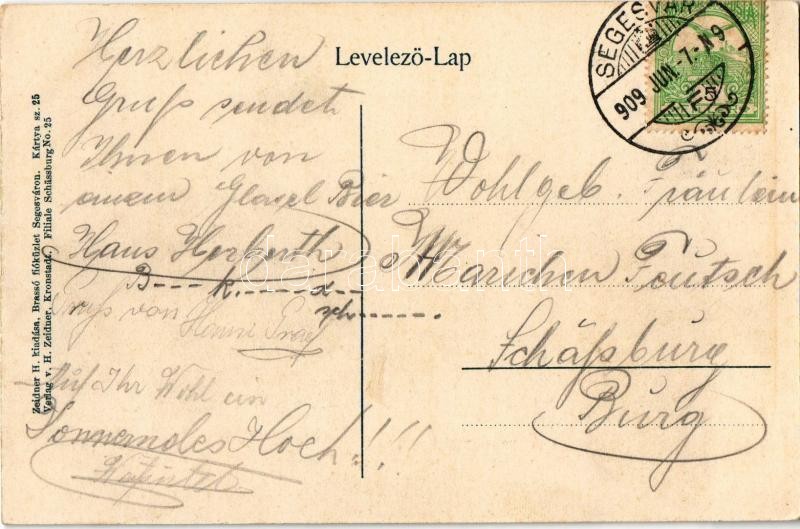 Levelező-Lap
SEGESVÁR
909 JUN. -7. N 9
5
Zeidner H. kiadása, Brassó fióküzlet Segesváron. Kártya sz. 25
Verlag v. H. Zeidner, Kronstadt, Filiale Schässburg No. 25
Herzlichen
Gruß sendet
Ihnen von
einem Glasel Bier
Hans Herberth
B---k-----d-
sch------
Gruß von Henri
Auf Ihr Wohl ein
Donnerndes Hoch!!!
Wohlgeb. Fräulein
Marichen Teutsch
Schäßburg
Burg
darabanth